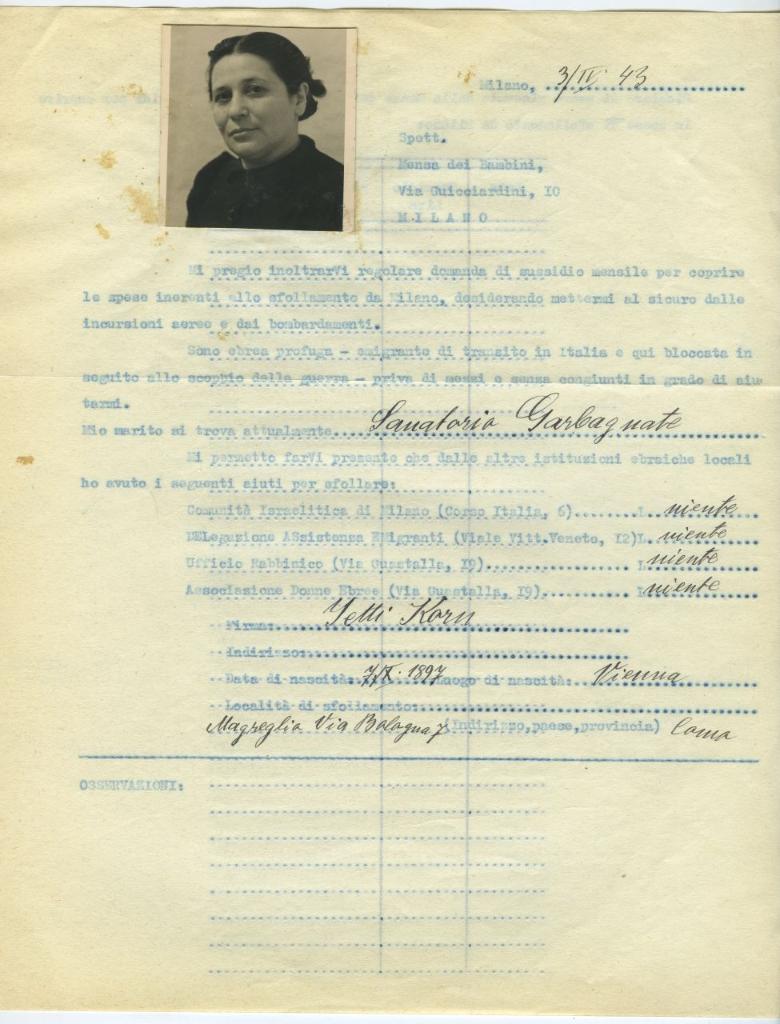 Milano, 3/IV 43
Spett.
Mensa dei Bambini,
Via Guicciardini, 10
M I L A N O
Mi pregio inoltrarVi regolare domanda di sussidio mensile per coprire
le spese inerenti allo sfollamento da Milano, desiderando mettermi al sicuro dalle
incursioni aeree e dai bombardamenti.
Sono ebrea profuga - emigrante di transito in Italia e qui bloccata in
seguito allo scoppio della guerra - priva di mezzi e senza congiunti in grado di aiu
tarmi.
Mio marito si trova attualmente Sanatorio Garbagnate
Mi permetto farVi presente che dalle altre istituzioni ebraiche locali
ho avuto i seguenti aiuti per sfollare:
Comunità Israelitica di Milano (Corso Italia, 6)........L. niente
DELegazione ASsistenza EMigranti (Viale Vitt.Veneto, 12)L. niente
Ufficio Rabbinico (Via Guastalla, 19)...................L. niente
Associazione Donne Ebree (Via Guastalla, 19)............L. niente
Firma: Yetti Korn
Indirizzo:
Data di nascita: 1897 Luogo di nascita: Vienna
Località di sfollamento:
Magreglio Via Bologna 7 (Indirizzo,paese,provincia) Como
OSSERVAZIONI: